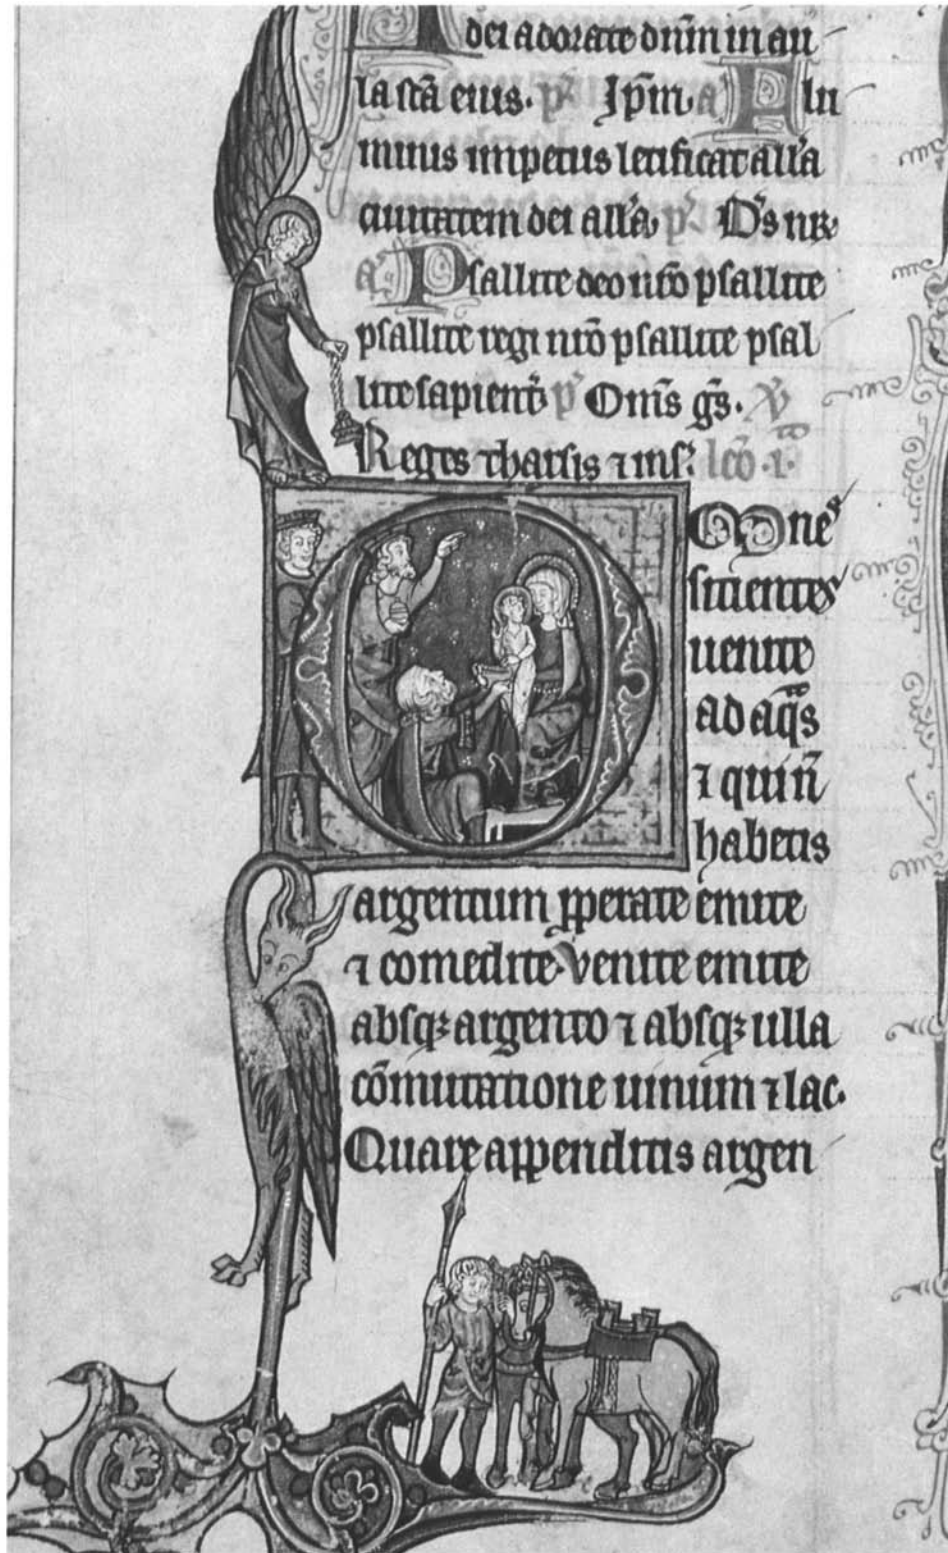 dei adorate dn̄m in au
la sc̄a eius. p̄s Ip̄m. a Flu
minis impetus letificat all'a
ciuitatem dei all'a. p̄s D's nr̄.
a Psallite deo nr̄o psallite
psallite regi nr̄o psallite psal
lite sapient̄ p̄ Om̄s gn̄s. V̄
Reges tharsis ⁊ ins'. lc̄o .i.
Omnes
sitientes
uenite
ad aq̄s
⁊ qui n̄
habetis
argentum ꝓperate emite
⁊ comedite. Venite emite
absqꝫ argento ⁊ absqꝫ ulla
cōmutatione uinum ⁊ lac.
Quare appenditis argen